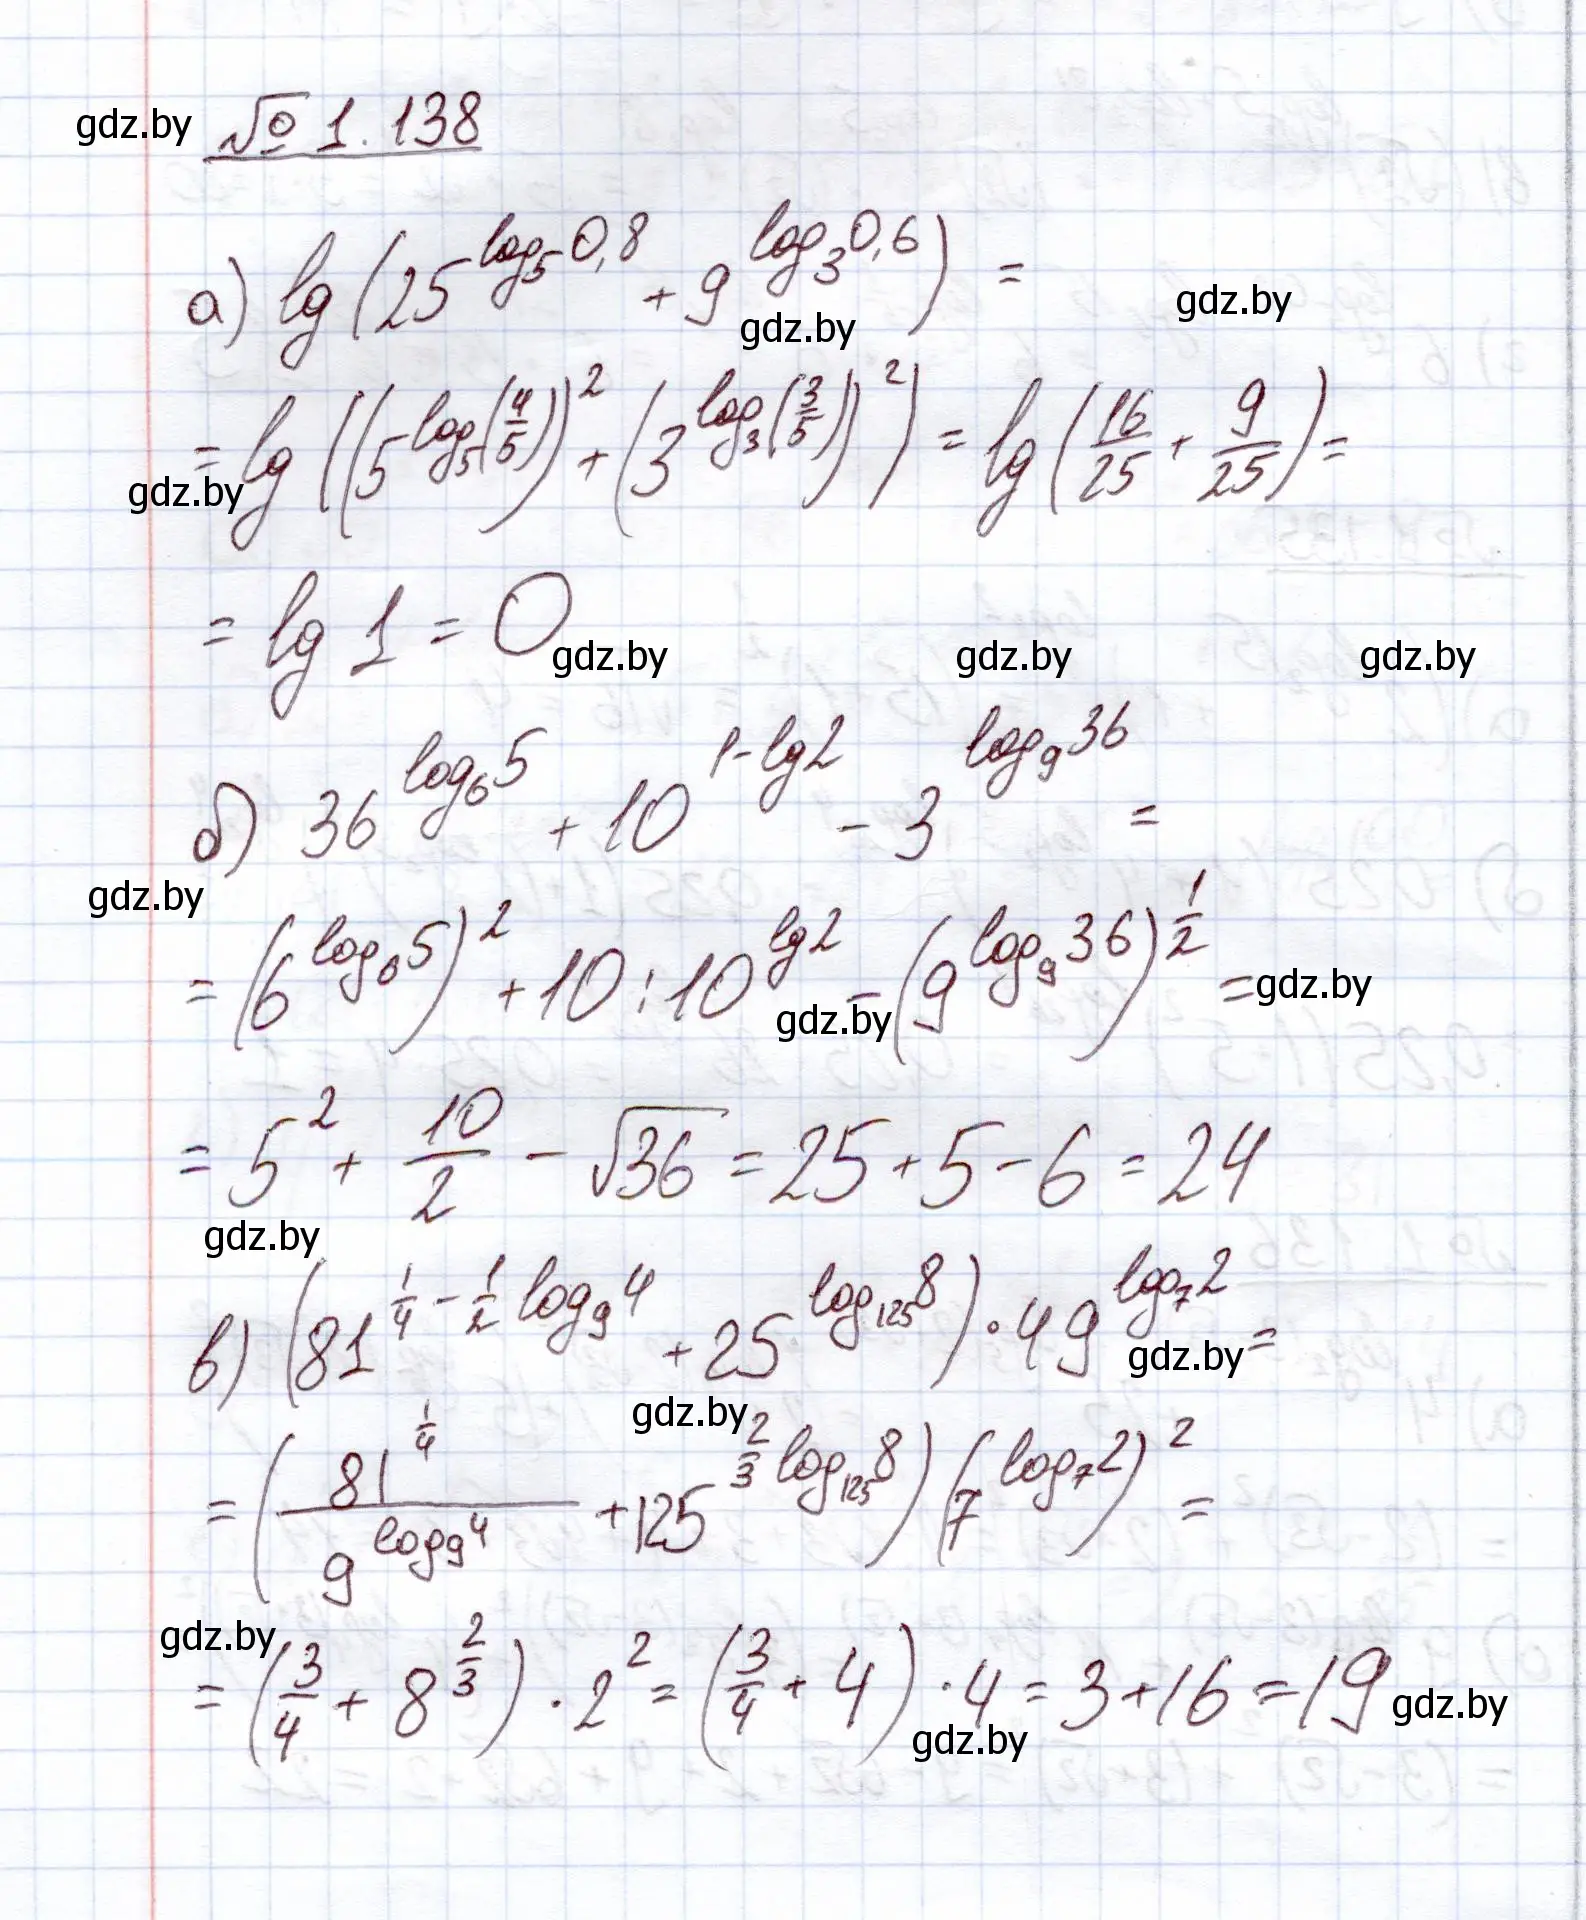 gdz.by № 1.138
а) lg(25^(log_5 0,8) + 9^(log_3 0,6)) =
gdz.by gdz.by
= lg((5^(log_5(4/5)))^2 + (3^(log_3(3/5)))^2) = lg(16/25 + 9/25) =
gdz.by
= lg 1 = 0
gdz.by gdz.by gdz.by
б) 36^(log_6 5) + 10^(1-lg2) - 3^(log_9 36) =
gdz.by
= (6^(log_6 5))^2 + 10 : 10^(lg2) - (9^(log_9 36))^(1/2) =
gdz.by gdz.by
= 5^2 + 10/2 - √36 = 25 + 5 - 6 = 24
gdz.by
в) (81^(1/4 - 1/2 log_9 4) + 25^(log_125 8)) · 49^(log_7 2) =
gdz.by gdz.by
= (81^(1/4) / 9^(log_9 4) + 125^(2/3 log_125 8)) (7^(log_7 2))^2 =
gdz.by
= (3/4 + 8^(2/3)) · 2^2 = (3/4 + 4) · 4 = 3 + 16 = 19
gdz.by gdz.by